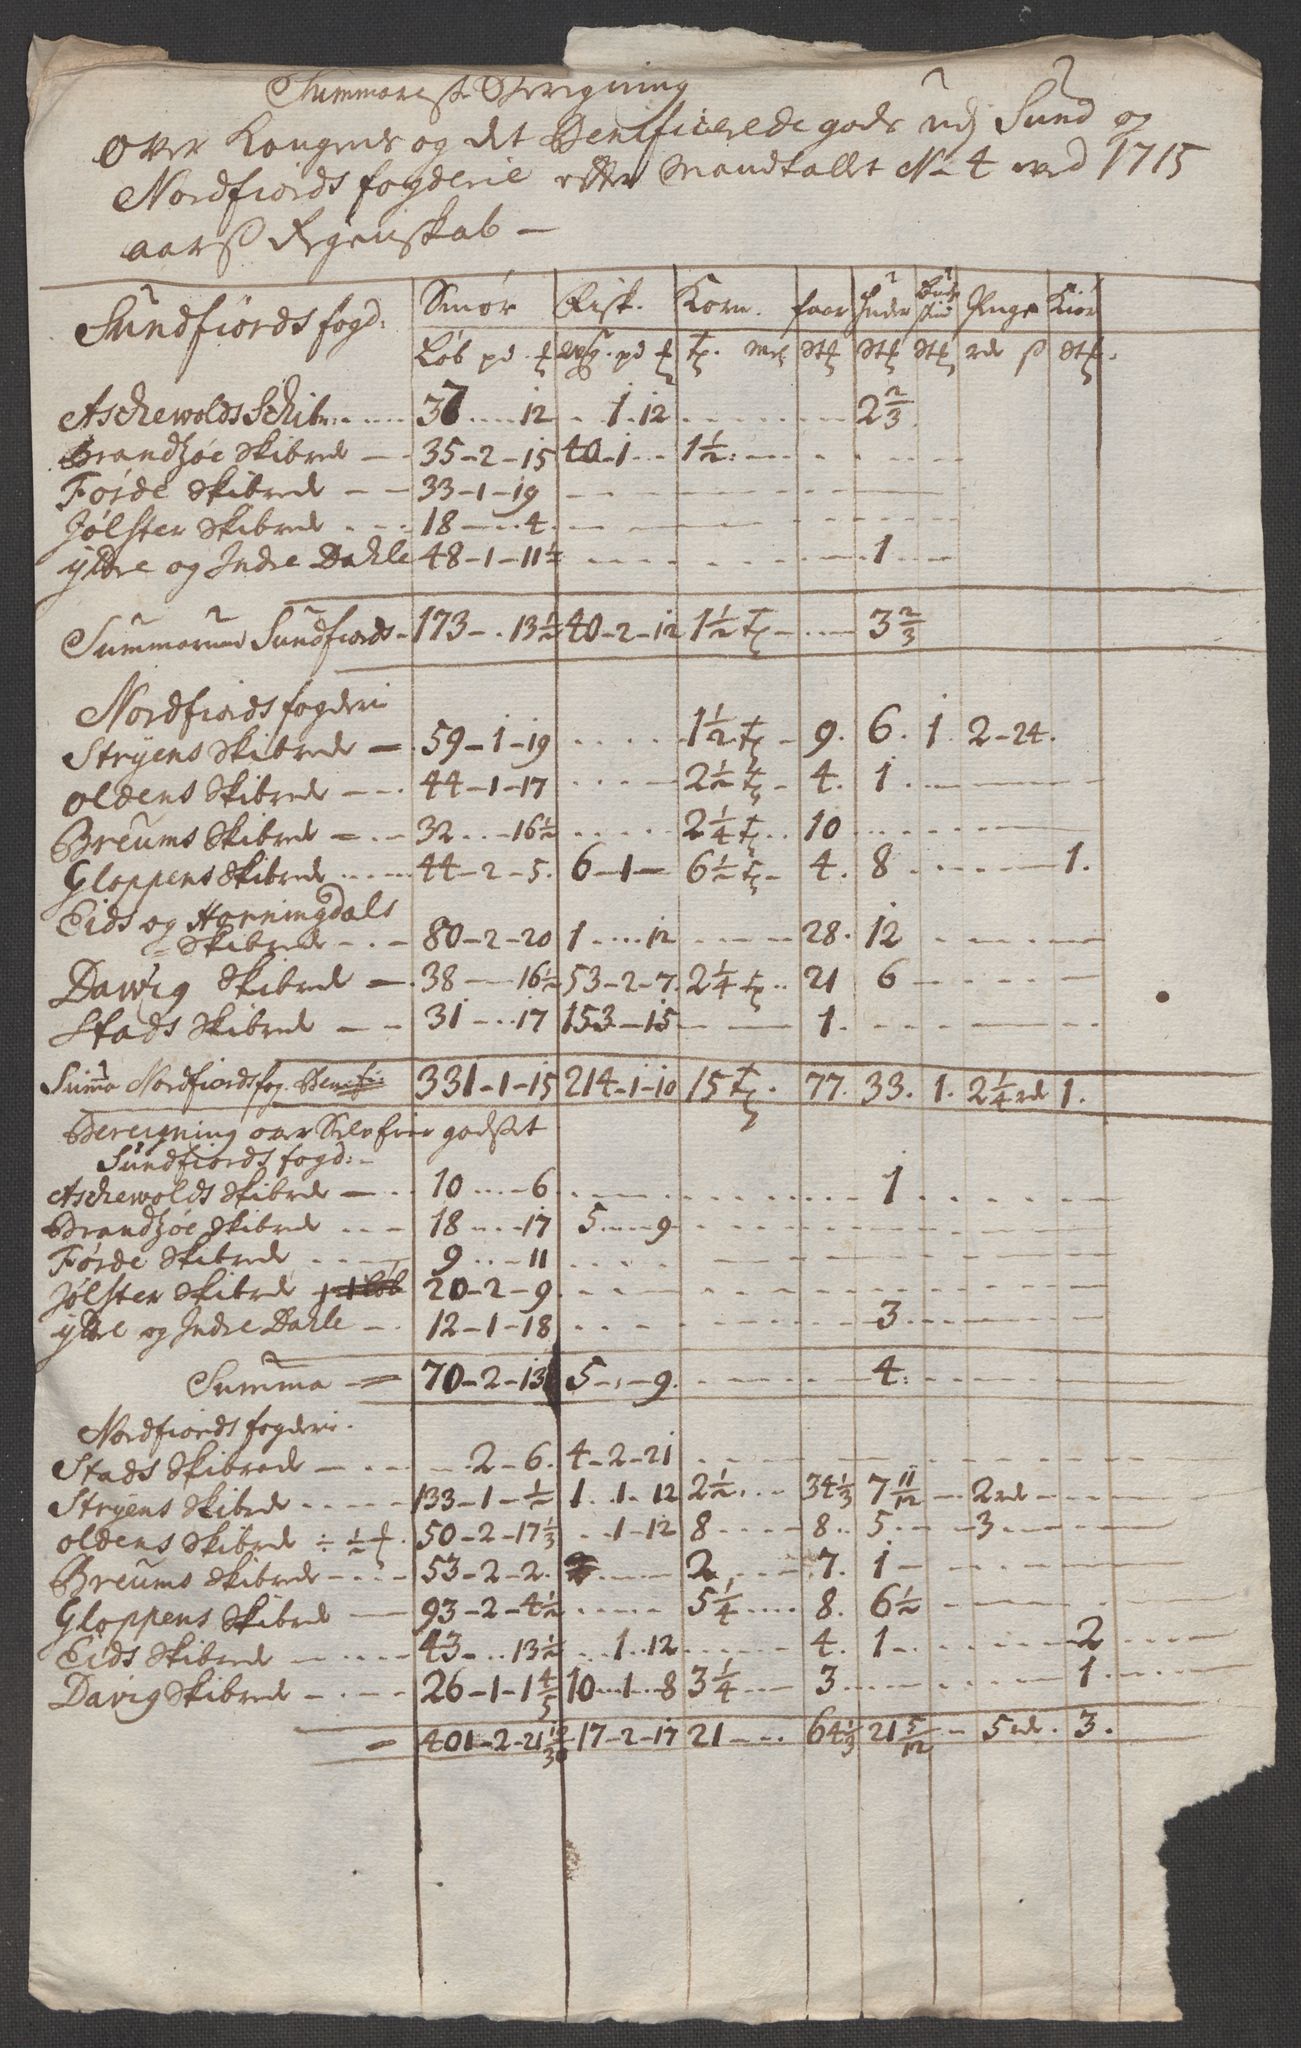 Summarisk Beregning
over Kongens og det Benificerede gods udj Sund og
Nordfiords fogderie efter Mandtallet No 4 ved 1715
aarss Regenskab —
Sundfiords fogd: Smør Fisk. Korn. faar Huder Buch skind Penge Kiør
Løb pd. ℔ Wog. pd ℔ Tr. Mel Stk Stk Stk rd ss Stk.
Aschewolds Schibr: 37 12 1 12 2 2/3
Brandzøe Skibrede 35-2-15 40-1 1½
Førde Skibrede 33-1-19
Jølster Skibrede 18 4
ydre og Indre Dahle 48-1-11½ 1
Summarum Sundfiords 173 13½ 40-2-12 1½ Tr 3 2/3
Nordfiords fogderi
Stryens Skibrede 59-1-19 1½ Tr 9. 6. 1. 2-24.
oldens Skibrede 44-1-17 2½ Tr 4. 1.
Breums Skibrede 32 16½ 2¼ Tr 10
Gloppens Skibrede 44-2-5. 6-1 6½ Tr 4. 8 1.
Eids og Horningdals
Skibrede 80-2-20 1 12 28. 12
Dawig Skibrede 38 16½ 53-2-7. 2¼ Tr 21 6
Stads Skibrede 31 17 153-15 1.
Summa Nordfiords fog. Benefi: 331-1-15 214-1-10 15 Tr. 77. 33. 1. 2¼ rd 1.
Beregning over Selvfrie godset
Sundfiords fogd:
Aschewolds Skibrede 10 6 1
Brandzøe Skibrede 18 17 5 9
Førde Skibrede 9 11
Jølster Skibrede 20-2-9
ydre og Indre Dahle 12-1-18 3
Summa 70-2-13 5 9. 4.
Nordfiords fogderie.
Stads Skibrede 2-6. 4-2-21
Stryens Skibrede 133-1-½ 1. 1. 12 2½ 34⅓ 7 11/12 2 rd
oldens Skibrede ÷ ½ ℔. 50-2-17⅓ 1-12 8 8. 5 3
Breums Skibrede 53-2-2. 2 7. 1
Gloppens Skibrede 93-2-4½ 5¼ 8. 6½
Eids Skibrede 43 13½ 1. 12 4. 1 2
Davig Skibrede 26-1-1 4/5 10 1 8 3¼ 3 1.
401-2-21 19/30 17-2-17 21 64⅓ 21 5/12 5 rd. 3.